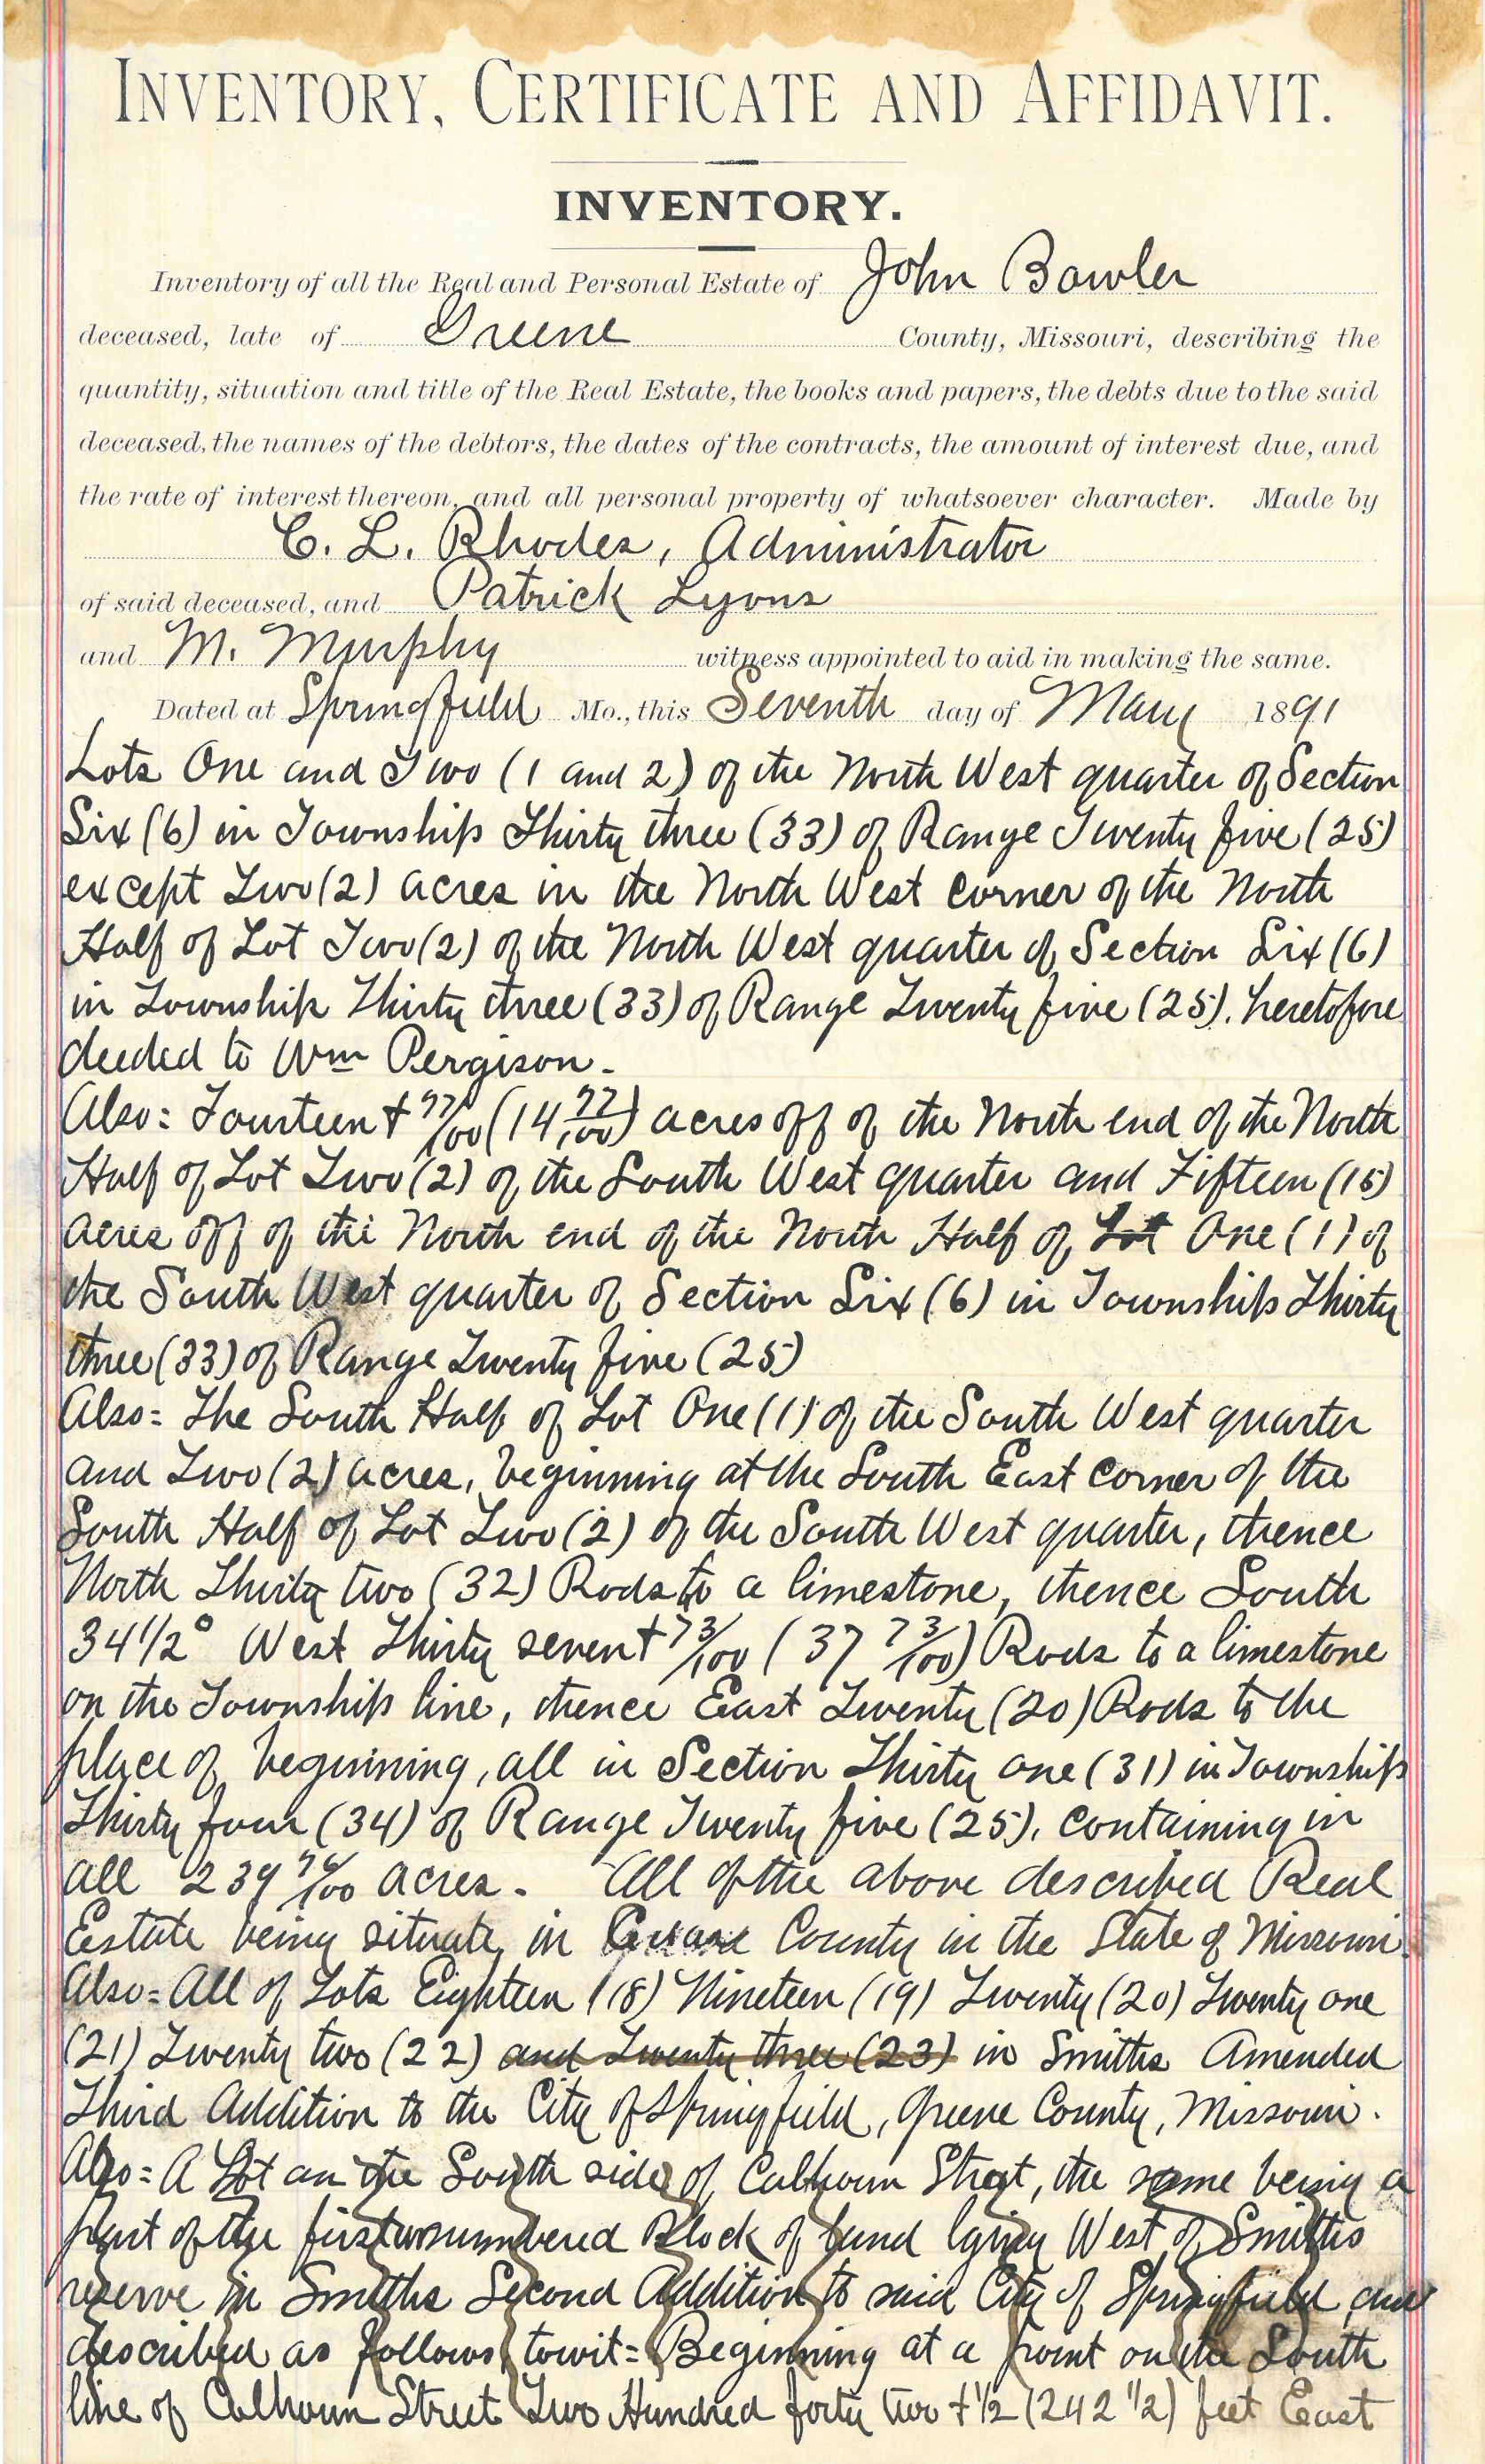 INVENTORY, CERTIFICATE AND AFFIDAVIT.
INVENTORY.
Inventory of all the Real and Personal Estate of John Bowler
deceased, late of Greene County, Missouri, describing the
quantity, situation and title of the Real Estate, the books and papers, the debts due to the said
deceased, the names of the debtors, the dates of the contracts, the amount of interest due, and
the rate of interest thereon, and all personal property of whatsoever character. Made by
C. L. Rhodes, Administrator
of said deceased, and Patrick Lyons
and M. Murphy witness appointed to aid in making the same.
Dated at Springfield Mo., this Seventh day of May 1891
Lots One and Two (1 and 2) of the North West quarter of Section
Six (6) in Township Thirty three (33) of Range Twenty five (25)
except Two (2) acres in the North West Corner of the North
Half of Lot Two (2) of the North West quarter of Section Six (6)
in Township Thirty three (33) of Range Twenty five (25). heretofore
deeded to Wm Pergison.
Also = Fourteen + 97/100 (14 97/100) acres off of the North end of the North
Half of Lot Two (2) of the South West quarter and Fifteen (15)
acres off of the North end of the North Half of Lot One (1) of
the South West quarter of Section Six (6) in Township Thirty
three (33) of Range Twenty five (25)
Also = The South Half of Lot One (1) of the South West quarter
and Two (2) acres, beginning at the South East Corner of the
South Half of Lot Two (2) of the South West quarter, thence
North Thirty two (32) Rods to a limestone, thence South
34 1/2° West Thirty seven + 73/100 (37 73/100) Rods to a limestone
on the Township line, thence East Twenty (20) Rods to the
place of beginning, all in Section Thirty one (31) in Township
Thirty four (34) of Range Twenty five (25), containing in
all 239 76/100 acres. All of the above described Real
Estate being situate in County in the State of Missouri.
Also = All of Lots Eighteen (18) Nineteen (19) Twenty (20) Twenty one
(21) Twenty two (22) and Twenty three (23) in Smiths Amended
Third Addition to the City of Springfield, Greene County, Missouri.
Also = A Lot on the South side of Calhoun Street, the same being a
part of the first unnumbered Block of land lying West of Smiths
reserve in Smiths Second Addition to said City of Springfield, and
described as follows, towit = Beginning at a point on the South
line of Calhoun Street Two Hundred forty two + 1/2 (242 1/2) feet East